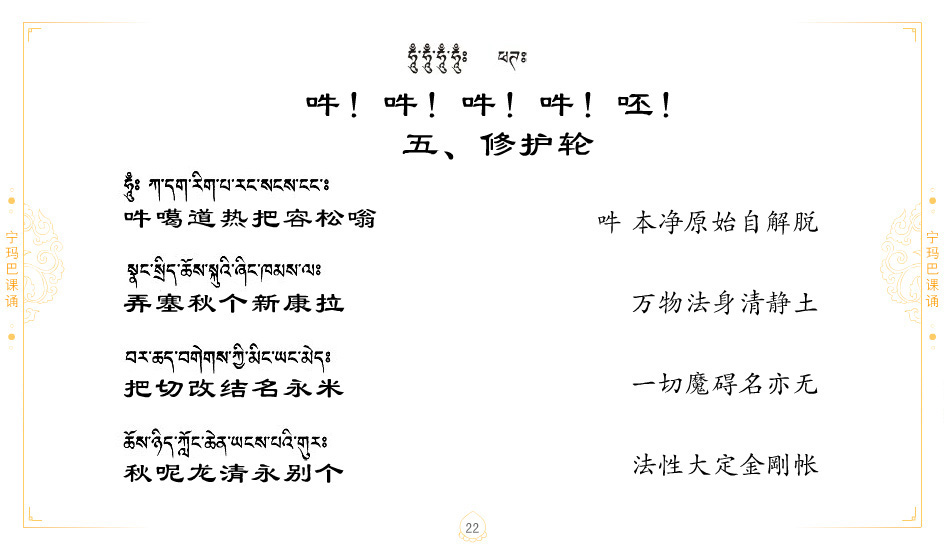 ཧཱུྃ་ཧཱུྃ་ཧཱུྃ་ཧཱུྃ༔ ཕཊ༔
吽！吽！吽！吽！呸！
五、修护轮
ཧཱུྃ༔ ཀ་དག་རིག་པ་རང་སངས་ངང་༔
吽噶道热把容松嗡
吽 本净原始自解脱
སྣང་སྲིད་ཆོས་སྐུའི་ཞིང་ཁམས་ལ༔
弄塞秋个新康拉
万物法身清静土
བར་ཆད་བགེགས་ཀྱི་མིང་ཡང་མེད༔
把切改结名永米
一切魔碍名亦无
ཆོས་ཉིད་ཀློང་ཆེན་ཡངས་པའི་གུར༔
秋呢龙清永别个
法性大定金剛帐
宁玛巴课诵
宁玛巴课诵
22